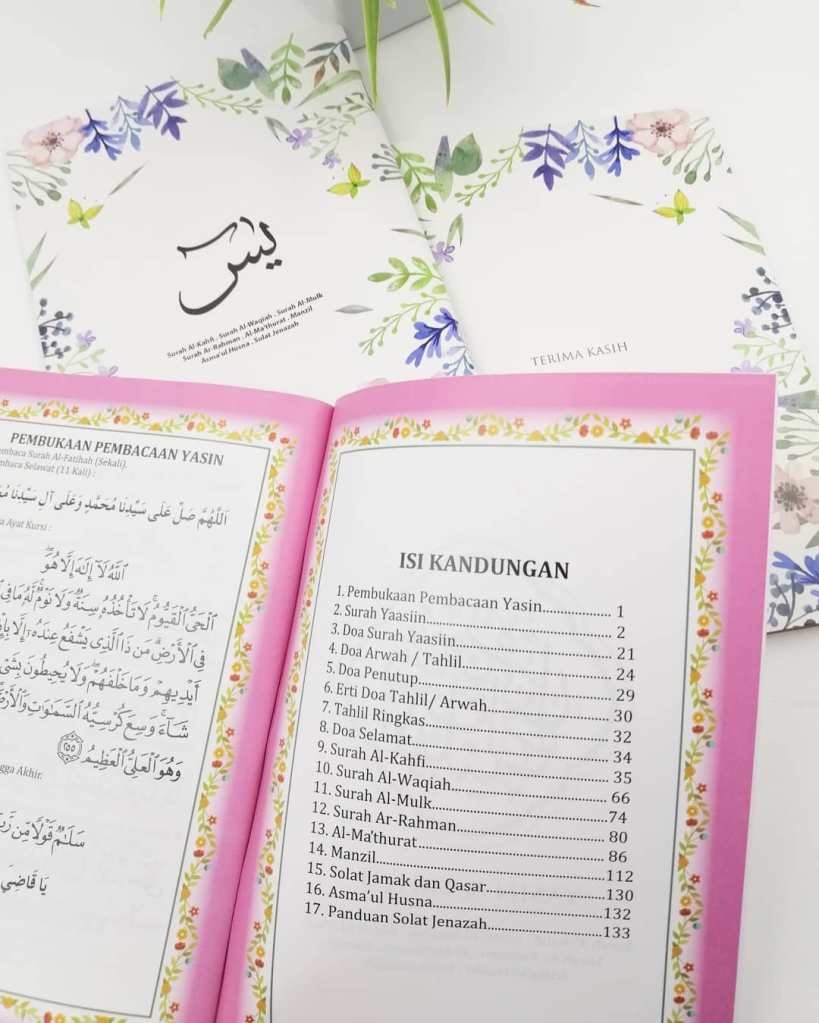 يس
Surah Al-Kahfi . Surah Al-Waqiah . Surah Al-Mulk
Surah Ar-Rahman . Al-Ma'thurat . Manzil
Asma'ul Husna . Solat Jenazah
TERIMA KASIH
PEMBUKAAN PEMBACAAN YASIN
baca Surah Al-Fatihah (Sekali).
baca Selawat (11 Kali) :
اَللّٰهُمَّ صَلِّ عَلَى سَيِّدِنَا مُحَمَّدٍ وَعَلَى آلِ سَيِّدِنَا
Ayat Kursi :
ٱللَّهُ لَآ إِلَٰهَ إِلَّا هُوَ
ٱلْحَىُّ ٱلْقَيُّومُ لَا تَأْخُذُهُۥ سِنَةٌ وَلَا نَوْمٌ لَّهُۥ مَا فِى
فِى ٱلْأَرْضِ مَن ذَا ٱلَّذِى يَشْفَعُ عِندَهُۥٓ إِلَّا
أَيْدِيهِمْ وَمَا خَلْفَهُمْ وَلَا يُحِيطُونَ
شَآءَ وَسِعَ كُرْسِيُّهُ ٱلسَّمَٰوَٰتِ
وَهُوَ ٱلْعَلِىُّ ٱلْعَظِيمُ ٢٥٥
Akhir.
سَلَٰمٌ قَوْلًا مِّن
يَا قَاضِيَ
ISI KANDUNGAN
1. Pembukaan Pembacaan Yasin................ 1
2. Surah Yaasiin................ 2
3. Doa Surah Yaasiin................ 21
4. Doa Arwah / Tahlil................ 24
5. Doa Penutup................ 29
6. Erti Doa Tahlil/ Arwah................ 30
7. Tahlil Ringkas................ 32
8. Doa Selamat................ 34
9. Surah Al-Kahfi................ 35
10. Surah Al-Waqiah................ 66
11. Surah Al-Mulk................ 74
12. Surah Ar-Rahman................ 80
13. Al-Ma'thurat................ 86
14. Manzil................ 112
15. Solat Jamak dan Qasar................ 130
16. Asma'ul Husna................ 132
17. Panduan Solat Jenazah................ 133